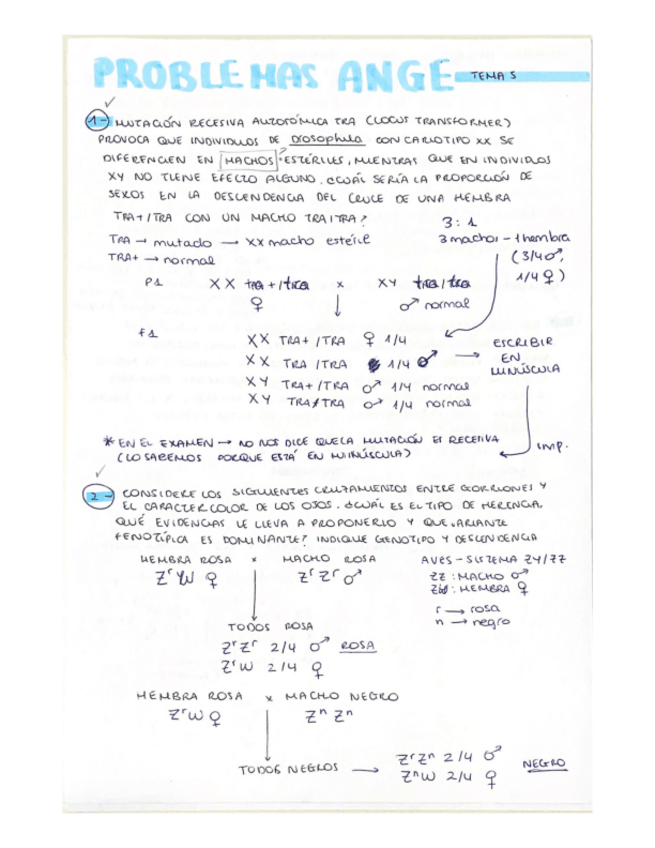 PROBLEMAS ANGE TEMA 5
1- MUTACIÓN RECESIVA AUTOSÓMICA TRA (LOCUS TRANSFORMER)
PROVOCA QUE INDIVIDUOS DE Drosophula CON CARIOTIPO XX SE
DIFERENCIEN EN MACHOS ESTÉRILES, MIENTRAS QUE EN INDIVIDUOS
XY NO TIENE EFECTO ALGUNO. ¿CUÁL SERÍA LA PROPORCIÓN DE
SEXOS EN LA DESCENDENCIA DEL CRUCE DE UNA HEMBRA
TRA+/TRA CON UN MACHO TRA/TRA?
3:1
TRA → mutado → XX macho estéril
3 machos - 1 hembra
TRA+ → normal
(3/4 ♂,
1/4 ♀)
P1 XX tra+/tra x XY tra/tra
♀ ♂ normal
F1
XX TRA+/TRA ♀ 1/4
XX TRA/TRA 1/4 ♂ →
XY TRA+/TRA ♂ 1/4 normal
XY TRA/TRA ♂ 1/4 normal
ESCRIBIR
EN
MINÚSCULA
* EN EL EXAMEN → NO NOS DICE QUE LA MUTACIÓN ES RECESIVA
(LO SABEMOS PORQUE ESTÁ EN MINÚSCULA)
imp.
2- CONSIDERE LOS SIGUIENTES CRUZAMIENTOS ENTRE GORRIONES Y
EL CARACTER COLOR DE LOS OJOS. ¿CUÁL ES EL TIPO DE HERENCIA,
QUÉ EVIDENCIAS LE LLEVA A PROPONERLO Y QUE VARIANTE
FENOTÍPICA ES DOMINANTE? INDIQUE GENOTIPO Y DESCENDENCIA
HEMBRA ROSA x MACHO ROSA
ZʳW ♀ ZʳZʳ ♂
AVES - SISTEMA ZY/ZZ
ZZ: MACHO ♂
: HEMBRA ♀
r → rosa
n → negro
TODOS ROSA
ZʳZʳ 2/4 ♂ ROSA
ZʳW 2/4 ♀
HEMBRA ROSA x MACHO NEGRO
ZʳW ♀ Zⁿ Zⁿ
TODOS NEGROS →
ZʳZⁿ 2/4 ♂
ZⁿW 2/4 ♀
NEGRO